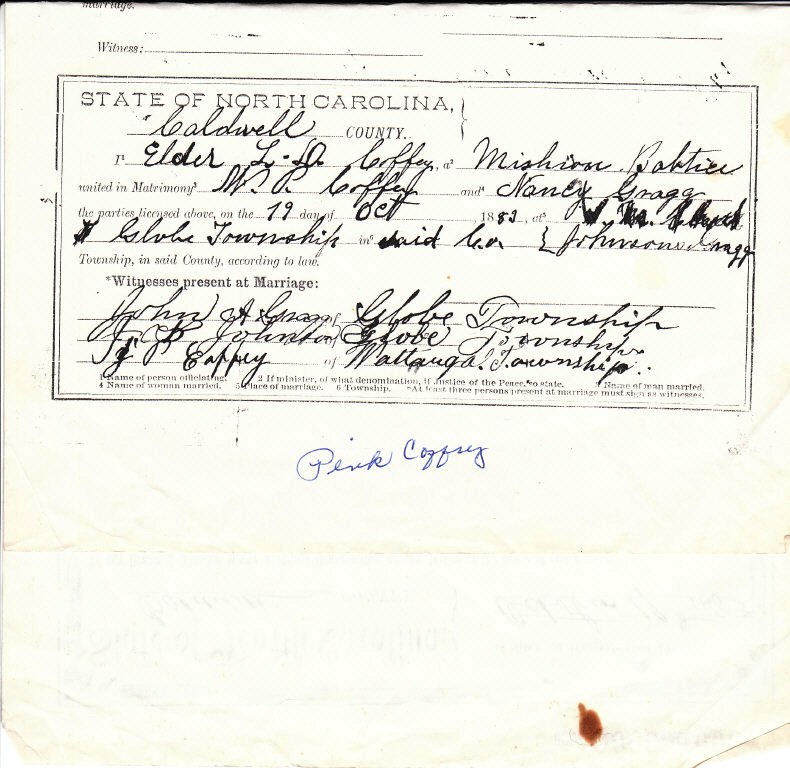 marriage.
Witness:
STATE OF NORTH CAROLINA,
Caldwell COUNTY.
I¹ Elder L. D. Coffey, a² Mishion Babtice
united in Matrimony³ W. P. Coffey and⁴ Nancy Gragg
the parties licensed above, on the 19 day of Oct, 1882, at⁵
Globe Township in⁶ said Co. { Johnsons Gragg
Township, in said County, according to law.
*Witnesses present at Marriage:
John A Gragg of Globe Township
J P Johnson of Globe Township
Coffey of Wattauga Township.
1 Name of person officiating. 2 If minister, of what denomination, if Justice of the Peace, so state. 3 Name of man married.
4 Name of woman married. 5 Place of marriage. 6 Township. *At least three persons present at marriage must sign as witnesses.
Pink Coffey